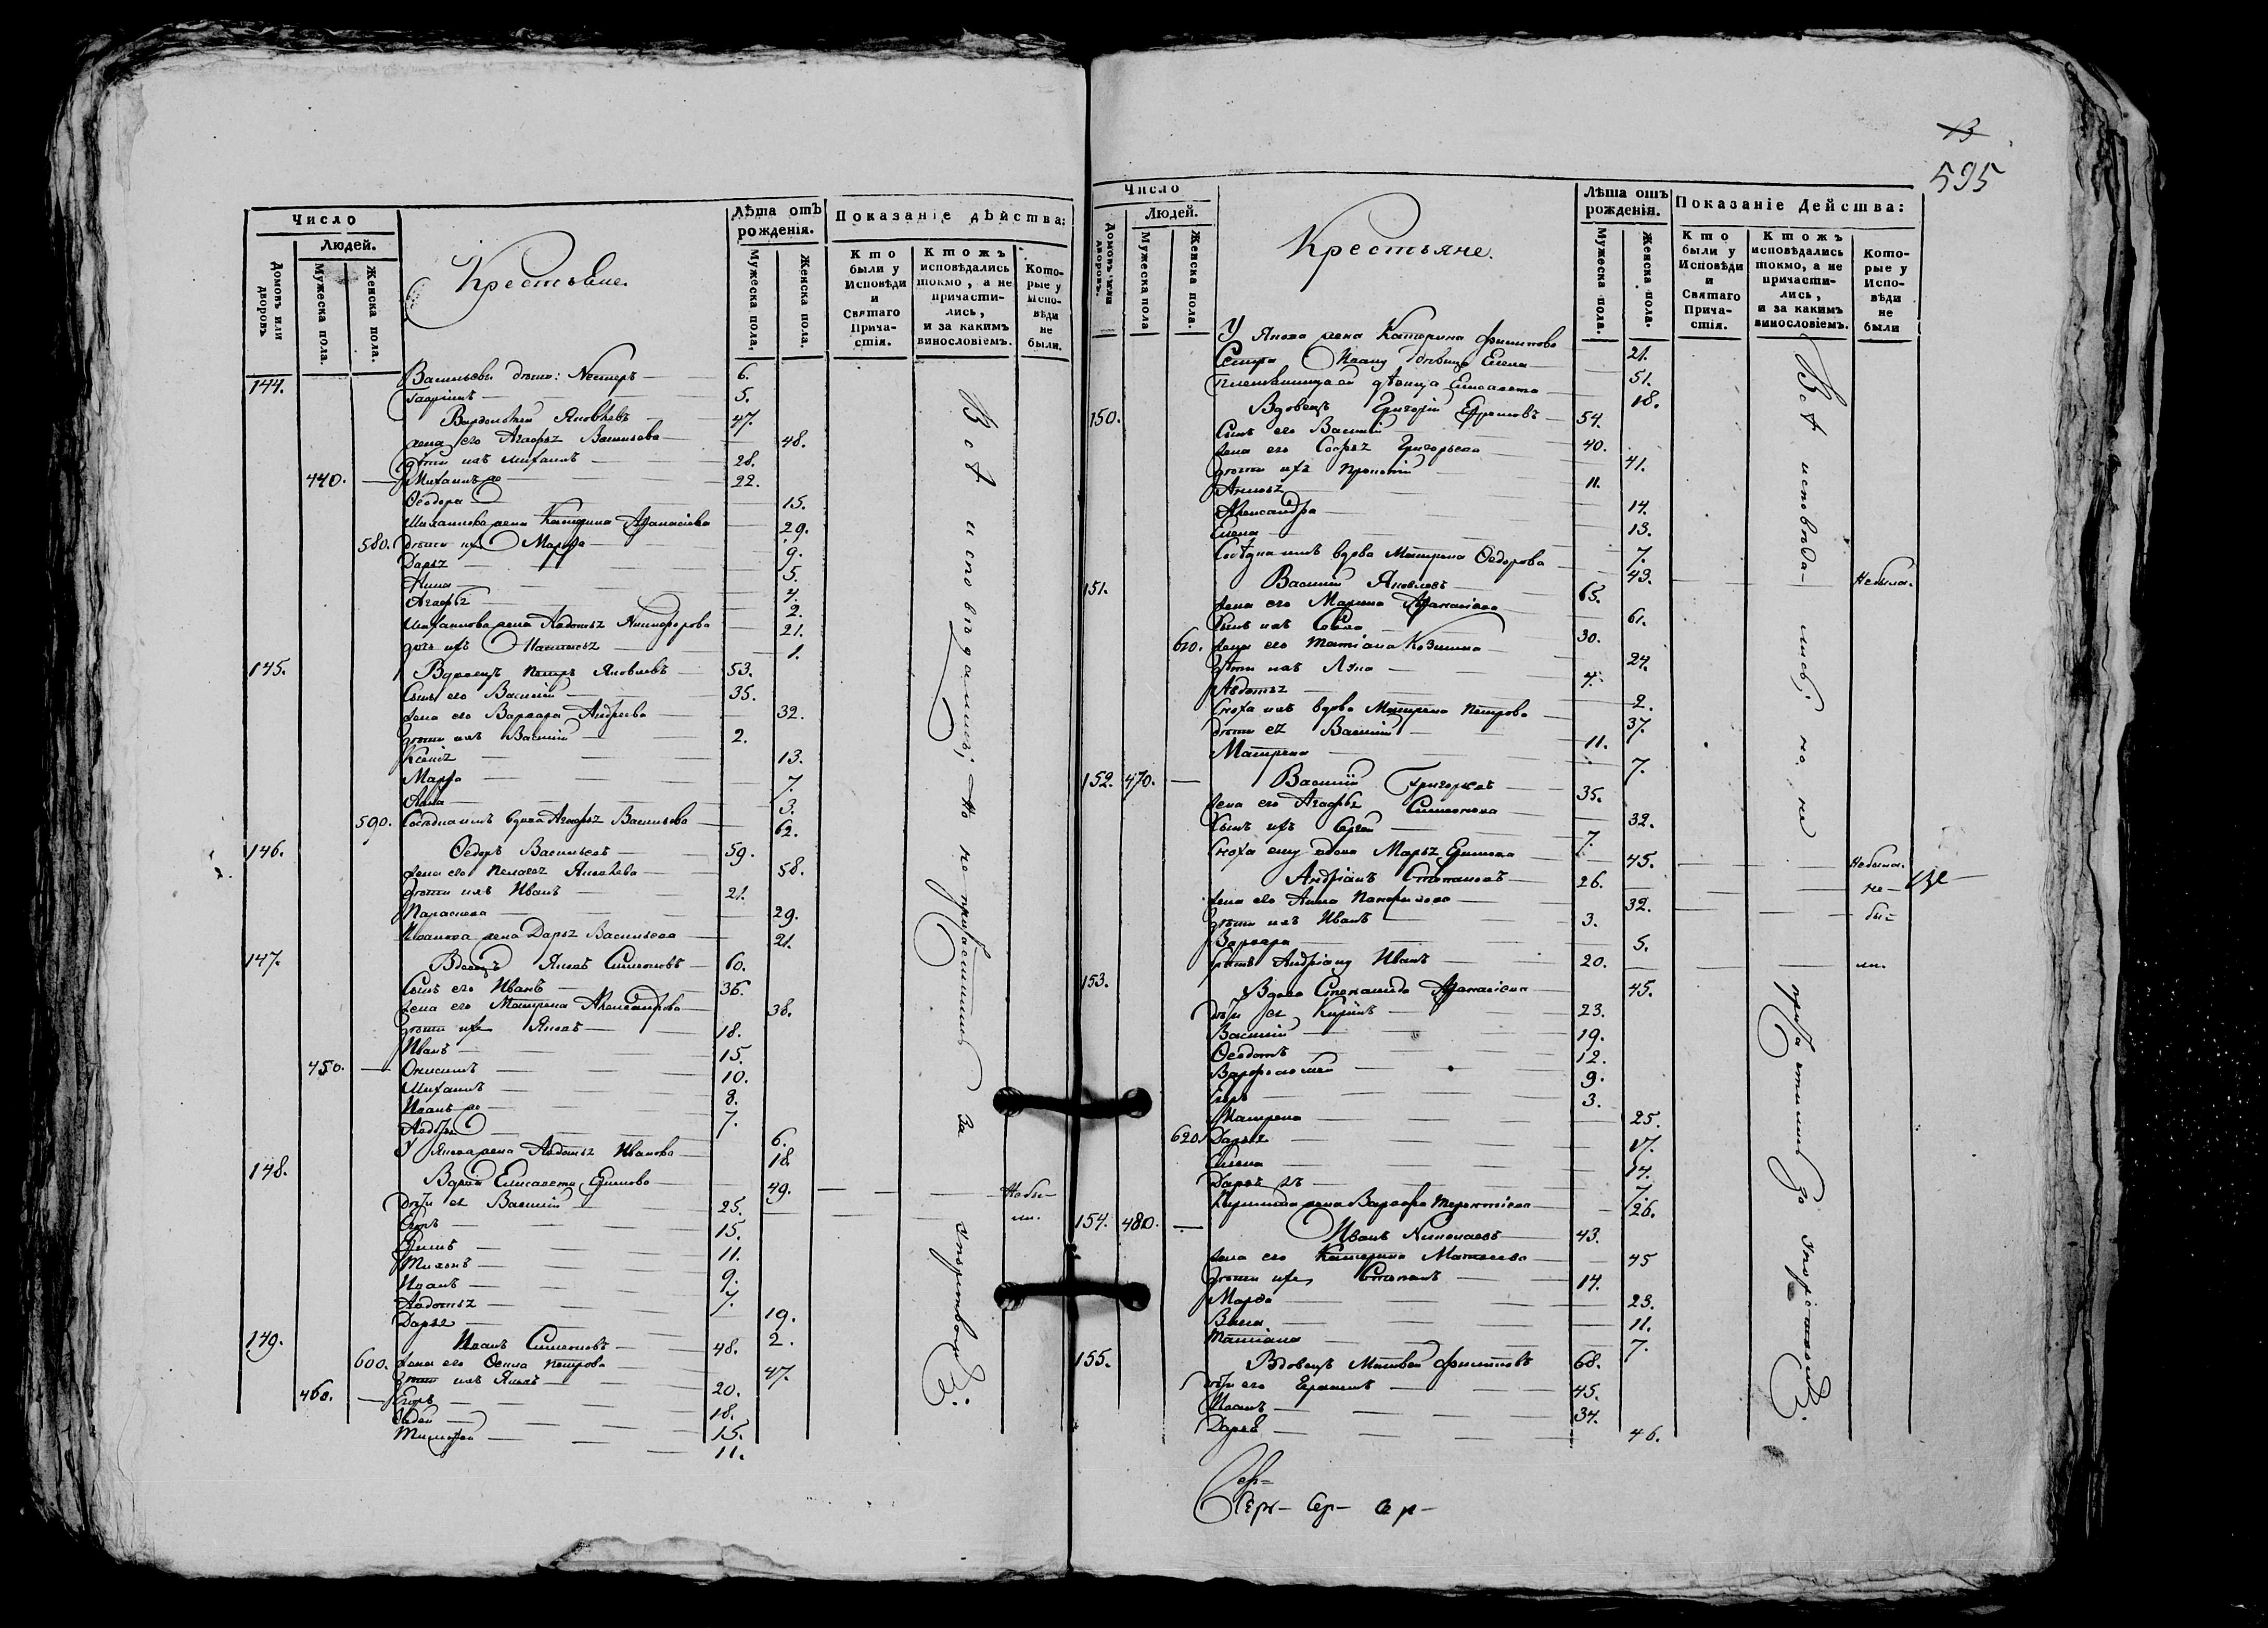 13
595
Число
Людей.
Домовъ или дворовъ
Мужеска пола.
Женска пола.
Крестьяне.
Лѣта отъ рожденія.
Мужеска пола.
Женска пола.
Показаніе дѣйства:
Кто были у Исповѣди и Святаго Прича-стія.
Ктожъ исповѣдались токмо, а не причасти-лись, и за какимъ винословіемъ.
Кото-рые у Испо-вѣди не были.
144. Васильевы дѣти: Несторъ 6.
5.
Яковлевъ 47.
жена его Агафья Васильева 48.
дѣти ихъ Михаилъ 28.
440. Михаилъ 22.
Ѳеодора 15.
Михаилова жена Катерина Афанасіева 29.
580. дѣти ихъ Марфа 9.
Дарья 5.
Анна 4.
Агафья 2.
Михаилова жена Авдотья Никифорова 21.
дочь ихъ Настасья 1.
145. Вдовецъ Петръ Яковлевъ 53.
Сынъ его Василій 35.
жена его Варвара Андреева 32.
дѣти ихъ Василій 2.
Ксенія 13.
Марфа 7.
Анна 3.
590. вдова Агафья Васильева 62.
146. Ѳедоръ Васильевъ 59.
жена его Пелагея Яковлева 58.
дѣти ихъ Иванъ 21.
Параскева 29.
Иванова жена Дарья Васильева 21.
147. Вдовецъ Яковъ Симеоновъ 60.
Сынъ его Иванъ 36.
жена его Матрена Александрова 38.
дѣти ихъ Яковъ 18.
Иванъ 15.
450. Онисимъ 10.
Михаилъ 8.
Иванъ 7.
6.
У Якова жена Авдотья Иванова 18.
148. Вдова Елисавета Ефимова 49. Небы-
дѣти ея Василій 25. ли.
Егоръ 15.
11.
Тихонъ 9.
Иванъ 7.
Авдотья 19.
Дарья 2.
149. Иванъ Симеоновъ 48.
600. жена его Петрова 47.
дѣти ихъ Яковъ 20.
460. Егоръ 18.
15.
Тимофей 11.
Всѣ исповѣдались; но не причастились за
Число
Людей.
Домовъ или дворовъ.
Мужеска пола
Женска пола.
Крестьяне.
Лѣта отъ рожденія.
Мужеска пола.
Женска пола.
Показаніе Дейсшва:
Кто были у Исповѣди и Святаго Прича-стія.
Ктожъ исповѣдались токмо, а не причасти-лись, и за какимъ винословіемъ.
Кото-рые у Испо-вѣди не были
У Якова жена Катерина Филипова 21.
Сестра Ивану Елена 51.
дѣвица Елисавета 18.
150. Вдовецъ Григорій Ефремовъ 54.
Сынъ его Василій 40.
жена его Софья Григорьева 41.
дѣти ихъ 11.
14.
Александра 13.
Елена 7.
вдова Матрена Ѳедорова 43. Небыла.
151. Василій Яковлевъ 65.
жена его Марина Афанасіева 61.
Сынъ ихъ 30.
610. жена его Татіана 24.
дѣти ихъ Лука 4.
Авдотья 2.
Сноха ихъ вдова Матрена Петрова 37.
дѣти ея Василій 11.
Матрена 7.
152. 470. Василій Григорьевъ 35.
жена его Агафья Симеонова 32.
Сынъ ихъ Сергей 7.
Сноха ему вдова Марья Ефимова 45. Небыла.
Андріанъ Степановъ 26. не-
жена его Анна 32. бы-
дѣти ихъ Иванъ 3.
Варвара 5.
братъ Андріану Иванъ 20. ли.
153. Вдова Степанида Афанасіева 45.
дѣти ея Кирилъ 23.
Василій 19.
Ѳеодотъ 12.
Варфоломей 9.
Егоръ 3.
Матрена 25.
620. Дарья 17.
Елена 14.
Дарья 7.
Кирилова жена Варвара Терентіева 26.
154. 480. Иванъ Николаевъ 43.
жена его Катерина Матвеева 45
дѣти ихъ Степанъ 14.
Марфа 23.
11.
Татіана 7.
155. Вдовецъ Матвей Филиповъ 68.
дѣти его 45.
Иванъ 34.
Дарья 46.
Всѣ исповѣда-лись; но не причастились за